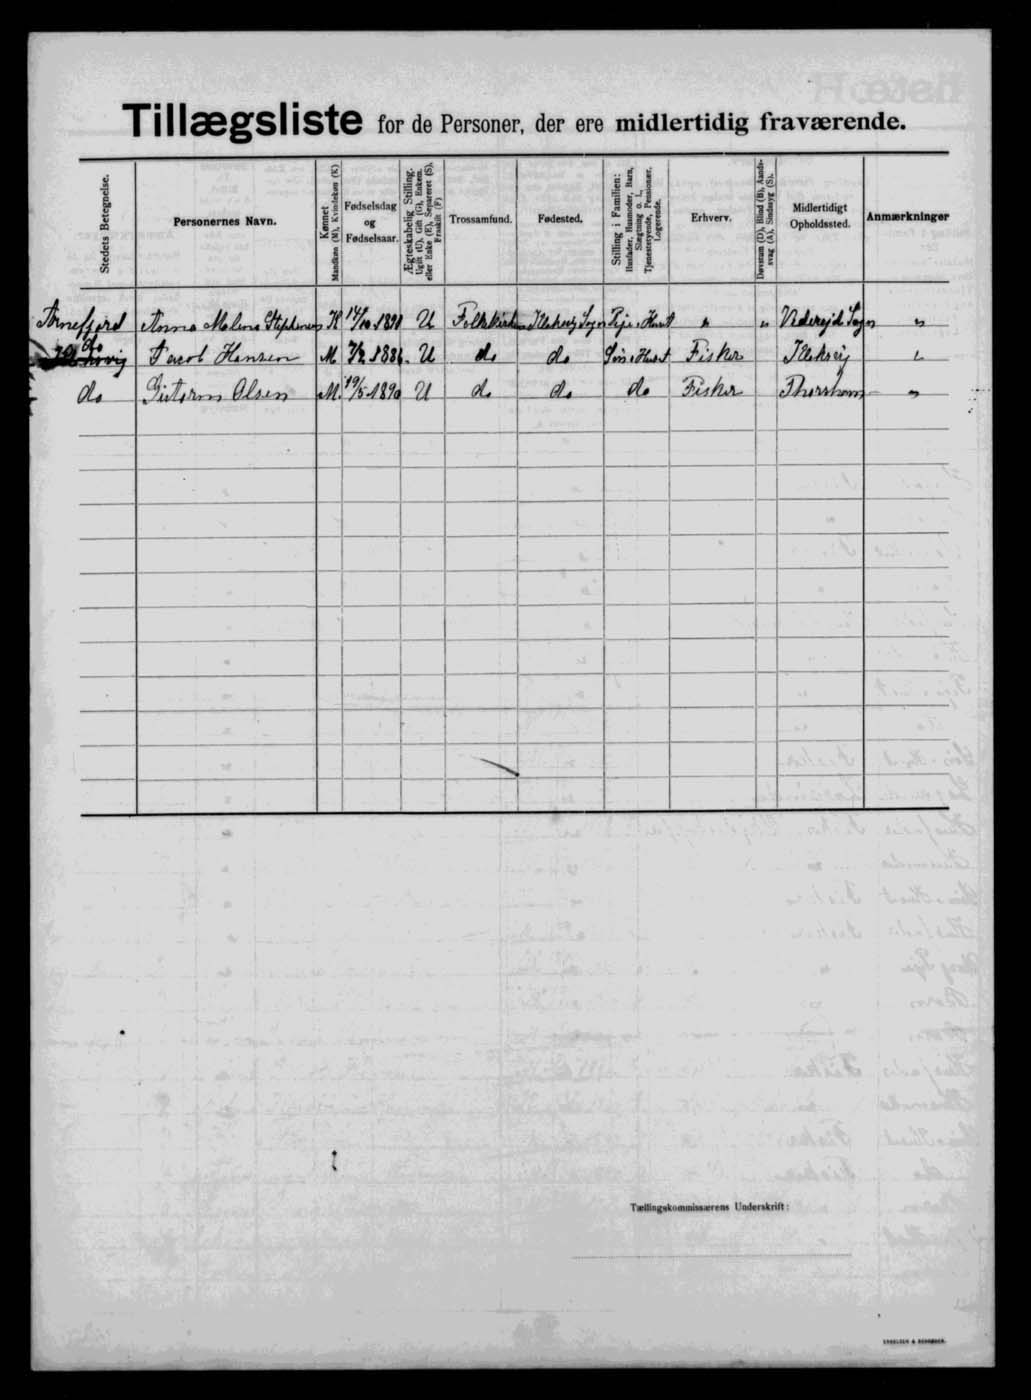 Tillægsliste for de Personer, der ere midlertidig fraværende.
Stedets Betegnelse.
Personernes Navn.
Kønnet
Mandkøn (M), Kvindekøn (K)
Fødselsdag
og
Fødselsaar.
Ægteskabelig Stilling.
Ugift (U), Gift (G), Enkem.
eller Enke (E), Separeret (S),
Fraskilt (F)
Trossamfund.
Fødested.
Stilling i Familien:
Husfader, Husmoder, Barn,
Slægtning o. l.,
Tjenestetyende, Pensionær,
Logerende.
Erhverv.
Døvstum (D), Blind (B), Aands-
svag (A), Sindssyg (S).
Midlertidigt
Opholdssted.
Anmærkninger
Arnefjord Anna Malena Stephansen K 14/10 1890 U Folkekirken Klaksvig Sogn Pige i Huset " " Viderejde Sogn "
do Jacob Hansen M 1886 U do do Søn i Huset Fisker Klaksvig "
do Guttorm Olsen M. 19/5 1890 U do do do Fisker Thorshavn "
Tællingskommissærens Underskrift: